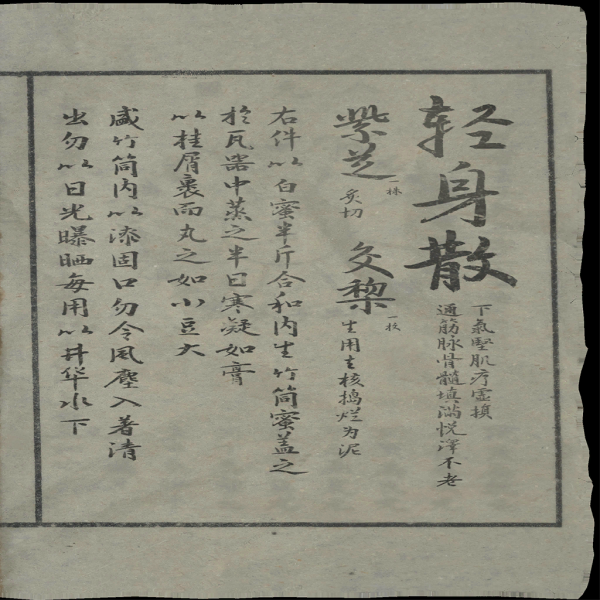 轻身散
下氣堅肌疗虚損
通筋脉骨髓填満悦澤不老
紫芝 一株 炙切 交梨 一枚 生用去核捣烂为泥
右件以白蜜半斤合和内生竹筒蜜盖之
於瓦器中蒸之半日寒凝如膏
以桂屑裹而丸之如小豆大
盛竹筒内以漆固口勿令風塵入著清
出勿以日光曝晒每用以井华水下